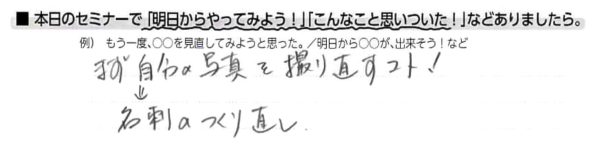 ■ 本日のセミナーで「明日からやってみよう！」「こんなこと思いついた！」などありましたら。
例） もう一度、○○を見直してみようと思った。／明日から○○が、出来そう！など
まず自分の写真を撮り直すコト！
↓
名刺のつくり直し